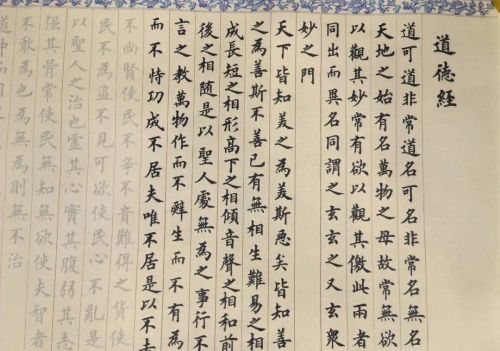 道德經
道可道非常道名可名非常名無名
天地之始有名萬物之母故常無欲
以觀其妙常有欲以觀其儌此兩者
同出而異名同謂之玄玄之又玄衆
妙之門
天下皆知美之為美斯惡矣皆知善
之為善斯不善已有無相生難易之相
成長短之相形高下之相傾音聲之相和前
後之相隨是以聖人處無為之事行不
言之教萬物作而不辭生而不有為
而不恃功成不居夫唯不居是以不去
不尚賢使民不爭不貴難得之貨使
民不為盜不見可欲使民心不亂是
以聖人之治也虛其心實其腹弱其志
強其骨常使民無知無欲使夫智者
不敢為也無為則無不治